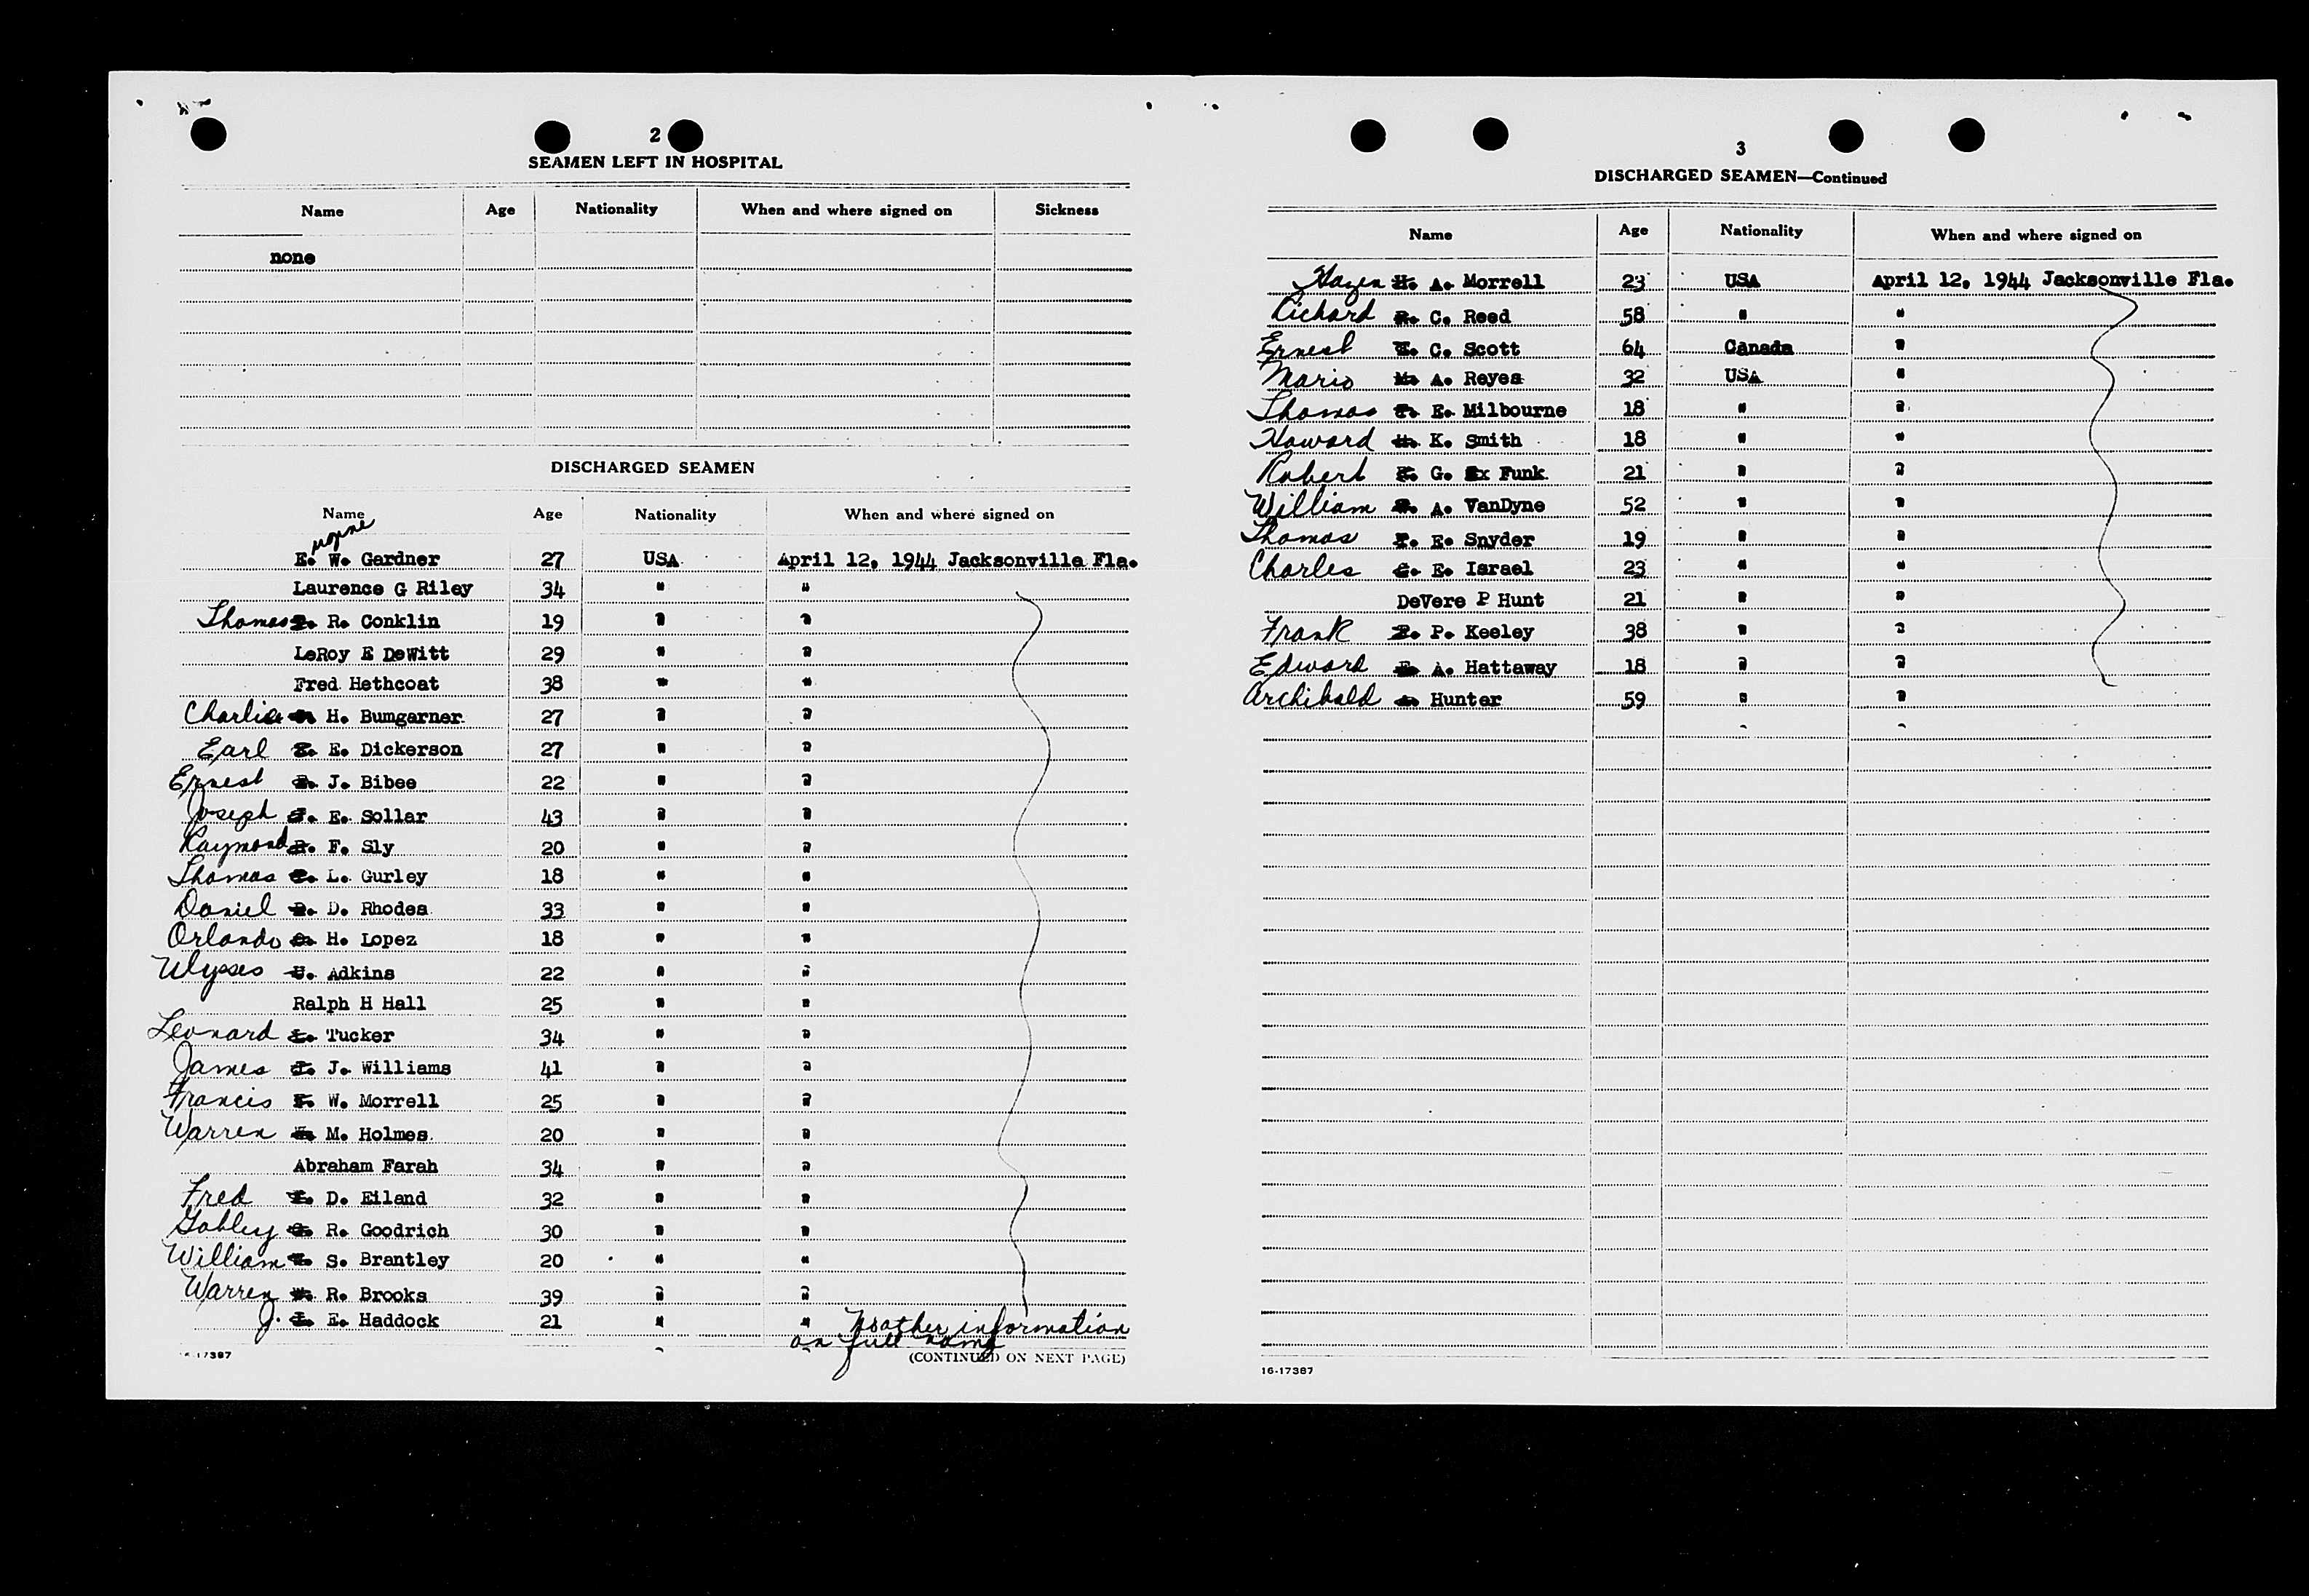 2
SEAMEN LEFT IN HOSPITAL
Name Age Nationality When and where signed on Sickness
none
DISCHARGED SEAMEN
Name Age Nationality When and where signed on
ugene
E. W. Gardner 27 USA April 12, 1944 Jacksonville Fla.
Laurence G Riley 34 " "
Thomas T. R. Conklin 19 " "
LeRoy E DeWitt 29 " "
Fred Hethcoat 38 " "
Charlie H. Bumgarner 27 " "
Earl E. E. Dickerson 27 " "
Ernest E. J. Bibee 22 " "
Joseph J. E. Sollar 43 " "
Raymond R. F. Sly 20 " "
Thomas T. L. Gurley 18 " "
Daniel D. D. Rhodes 33 " "
Orlando O. H. Lopez 18 " "
Ulysses U. Adkins 22 " "
Ralph H Hall 25 " "
Leonard L. Tucker 34 " "
James J. J. Williams 41 " "
Francis F. W. Morrell 25 " "
Warren W. M. Holmes 20 " "
Abraham Farah 34 " "
Fred F. D. Eiland 32 " "
G. R. Goodrich 30 " "
William W. S. Brantley 20 " "
Warren W. R. Brooks 39 " "
J. J. E. Haddock 21 " " No other information
on full name
(CONTINUED ON NEXT PAGE)
16-17387
3
DISCHARGED SEAMEN—Continued
Name Age Nationality When and where signed on
Hazen H. A. Morrell 23 USA April 12, 1944 Jacksonville Fla.
Richard R. C. Reed 58 " "
Ernest E. C. Scott 64 Canada "
Mario M. A. Reyes 32 USA "
Thomas T. E. Milbourne 18 " "
Howard H. K. Smith 18 " "
Robert R. G. Funk 21 " "
William W. A. VanDyne 52 " "
Thomas T. E. Snyder 19 " "
Charles C. E. Israel 23 " "
DeVere P Hunt 21 " "
Frank F. P. Keeley 38 " "
Edward E. A. Hattaway 18 " "
Archibald A. Hunter 59 " "
16-17387